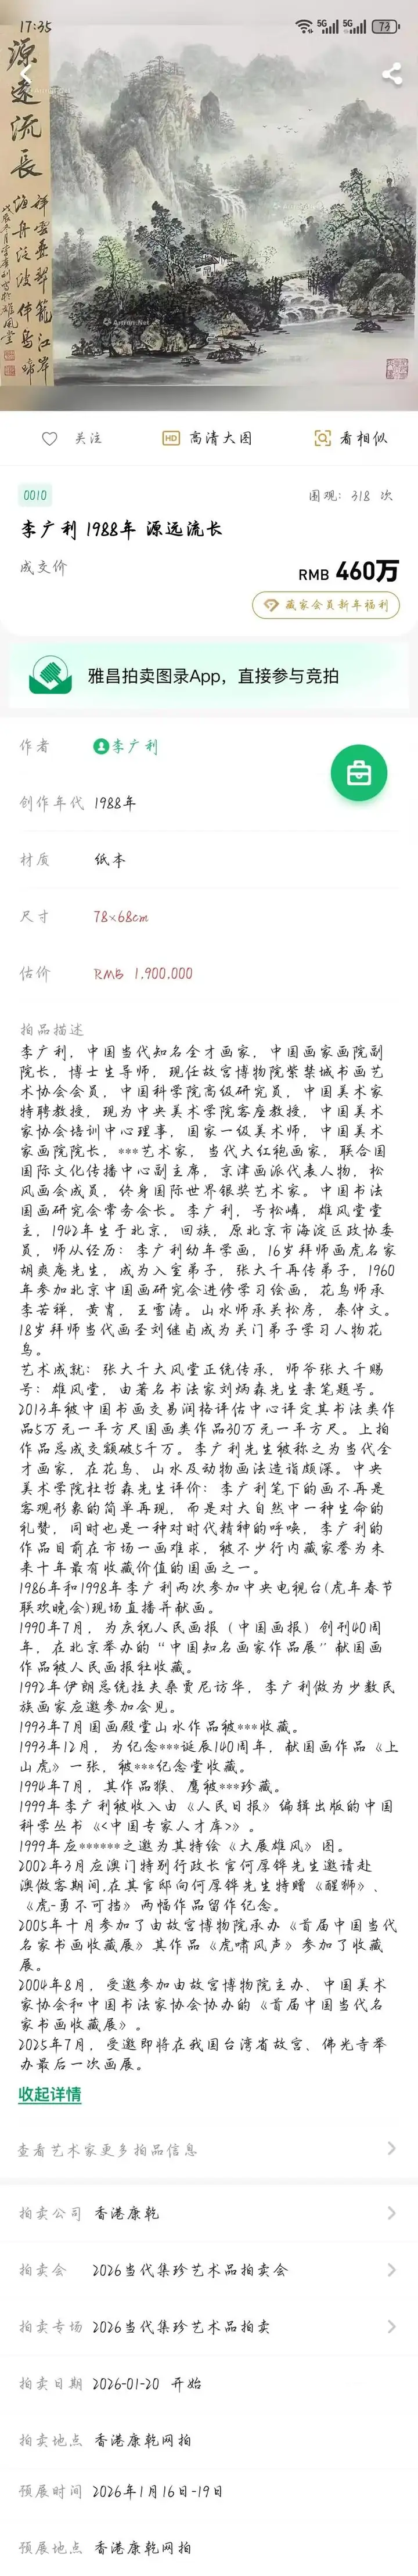 17:35
5G
5G
73
源遠流長
Artron.Net
HD
关注
高清大图
看相似
0010
围观: 318 次
李广利 1988年 源远流长
成交价
RMB 460万
藏家会员新年福利
雅昌拍卖图录App，直接参与竞拍
作者 李广利
创作年代 1988年
材质 纸本
尺寸 78×68cm
估价 RMB 1,900,000
拍品描述
李广利，中国当代知名全才画家，中国画家画院副
院长，博士生导师，现任故宫博物院紫禁城书画艺
术协会会员，中国科学院高级研究员，中国美术家
特聘教授，现为中央美术学院客座教授，中国美术
家协会培训中心理事，国家一级美术师，中国美术
家画院院长，***艺术家，当代大红袍画家，联合国
国际文化传播中心副主席，京津画派代表人物，松
风画会成员，终身国际世界银奖艺术家。中国书法
国画研究会常务会长。李广利，号松嶙，雄风堂堂
主，1942年生于北京，回族，原北京市海淀区政协委
员，师从经历：李广利幼年学画，16岁拜师画虎名家
胡爽庵先生，成为入室弟子，张大千再传弟子，1960
年参加北京中国画研究会进修学习绘画，花鸟师承
李苦禅，黄胄，王雪涛。山水师承关松房，秦仲文。
18岁拜师当代画圣刘继卣成为关门弟子学习人物花
鸟。
艺术成就：张大千大风堂正统传承，师爷张大千赐
号：雄风堂，由著名书法家刘炳森先生亲笔题号。
2013年被中国书画交易润格评估中心评定其书法类作
品5万元一平方尺国画类作品30万元一平方尺。上拍
作品总成交额破5千万。李广利先生被称之为当代全
才画家，在花鸟、山水及动物画法造诣颇深。中央
美术学院杜哲森先生评价：李广利笔下的画不再是
客观形象的简单再现，而是对大自然中一种生命的
礼赞，同时也是一种对时代精神的呼唤，李广利的
作品目前在市场一画难求，被不少行内藏家誉为未
来十年最有收藏价值的国画之一。
1986年和1998年李广利两次参加中央电视台(虎年春节
联欢晚会)现场直播并献画。
1990年7月，为庆祝人民画报（中国画报）创刊40周
年，在北京举办的“中国知名画家作品展”献国画
作品被人民画报社收藏。
1992年伊朗总统拉夫桑贾尼访华，李广利做为少数民
族画家应邀参加会见。
1993年7月国画殿堂山水作品被***收藏。
1993年12月，为纪念***诞辰140周年，献国画作品《上
山虎》一张，被***纪念堂收藏。
1994年7月，其作品猴、鹰被***珍藏。
1999年李广利被收入由《人民日报》编辑出版的中国
科学丛书《<中国专家人才库>》。
1999年应******之邀为其特绘《大展雄风》图。
2002年3月应澳门特别行政长官何厚铧先生邀请赴
澳做客期间,在其官邸向何厚铧先生特赠《醒狮》、
《虎-勇不可挡》两幅作品留作纪念。
2005年十月参加了由故宫博物院承办《首届中国当代
名家书画收藏展》其作品《虎啸风声》参加了收藏
展。
2004年8月，受邀参加由故宫博物院主办、中国美术
家协会和中国书法家协会协办的《首届中国当代名
家书画收藏展》。
2025年7月，受邀即将在我国台湾省故宫、佛光寺举
办最后一次画展。
收起详情
查看艺术家更多拍品信息
拍卖公司 香港康乾
拍卖会 2026当代集珍艺术品拍卖会
拍卖专场 2026当代集珍艺术品拍卖
拍卖日期 2026-01-20 开始
拍卖地点 香港康乾网拍
预展时间 2026年1月16日-19日
预展地点 香港康乾网拍